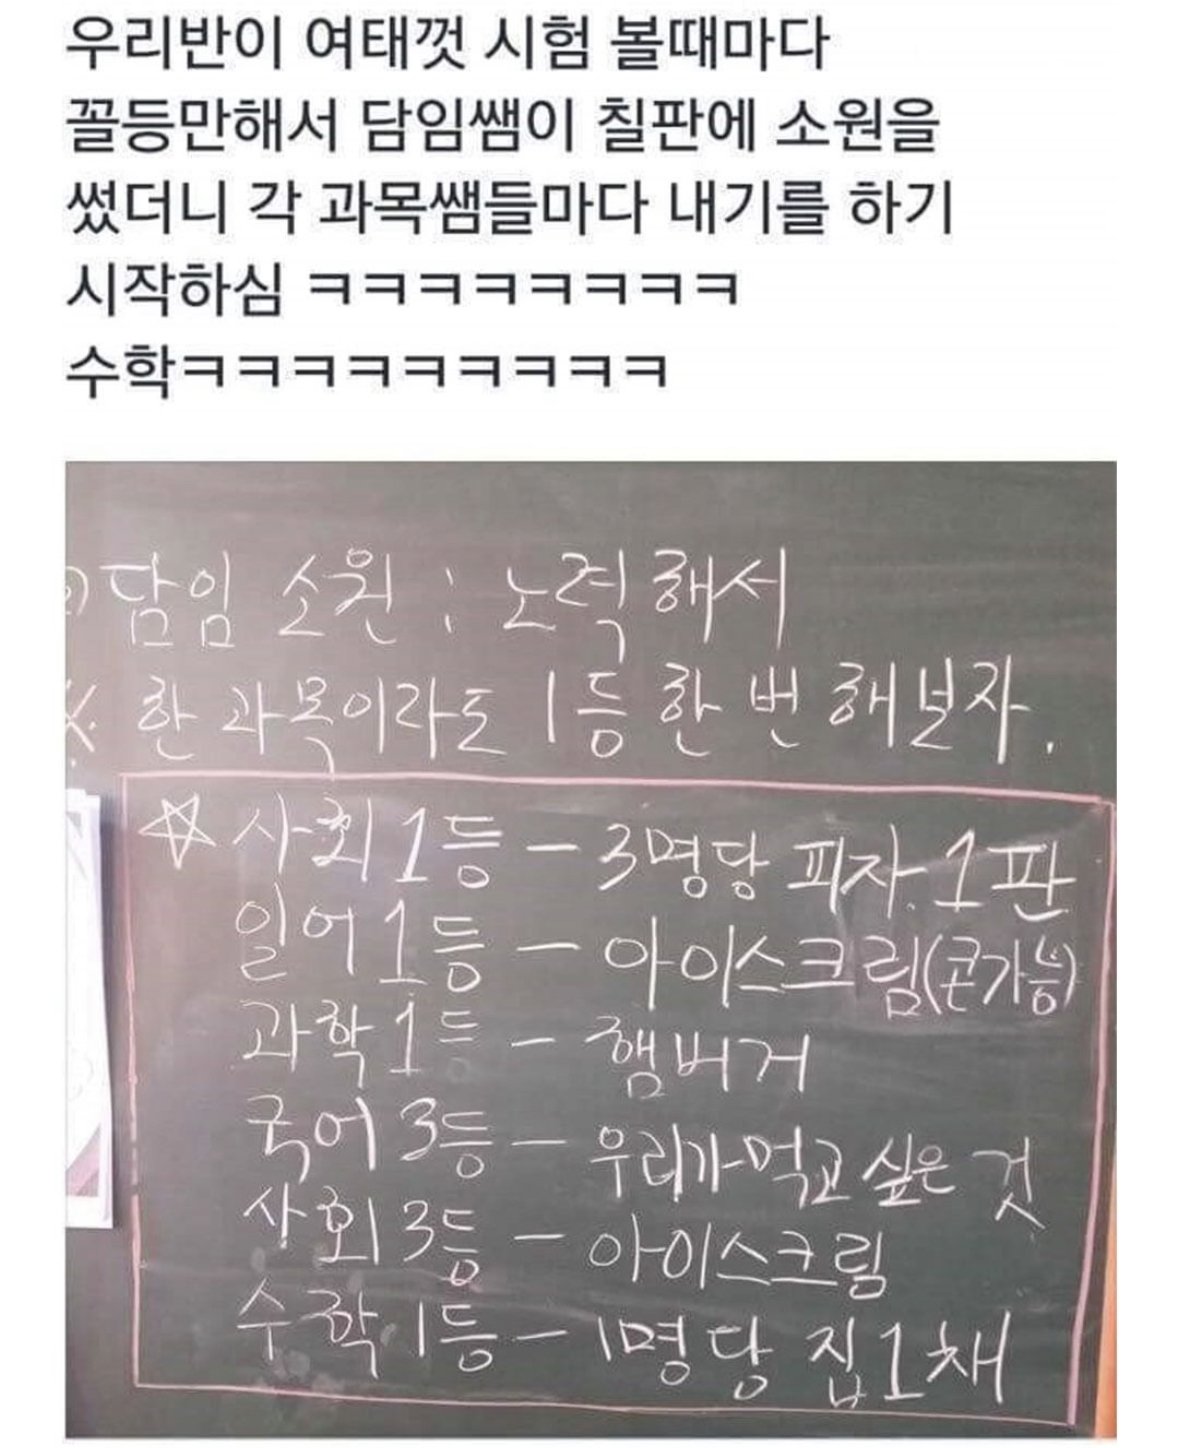 우리반이 여태껏 시험 볼때마다
꼴등만해서 담임쌤이 칠판에 소원을
썼더니 각 과목쌤들마다 내기를 하기
시작하심 ㅋㅋㅋㅋㅋㅋㅋㅋ
수학ㅋㅋㅋㅋㅋㅋㅋㅋㅋ
담임 소원 : 노력해서
※ 한 과목이라도 1등 한 번 해보자.
☆ 사회 1등 - 3명당 피자 1판
일어 1등 - 아이스크림(콘가능)
과학 1등 - 햄버거
국어 3등 - 우리가 먹고 싶은 것
사회 3등 - 아이스크림
수학 1등 - 1명당 집 1채